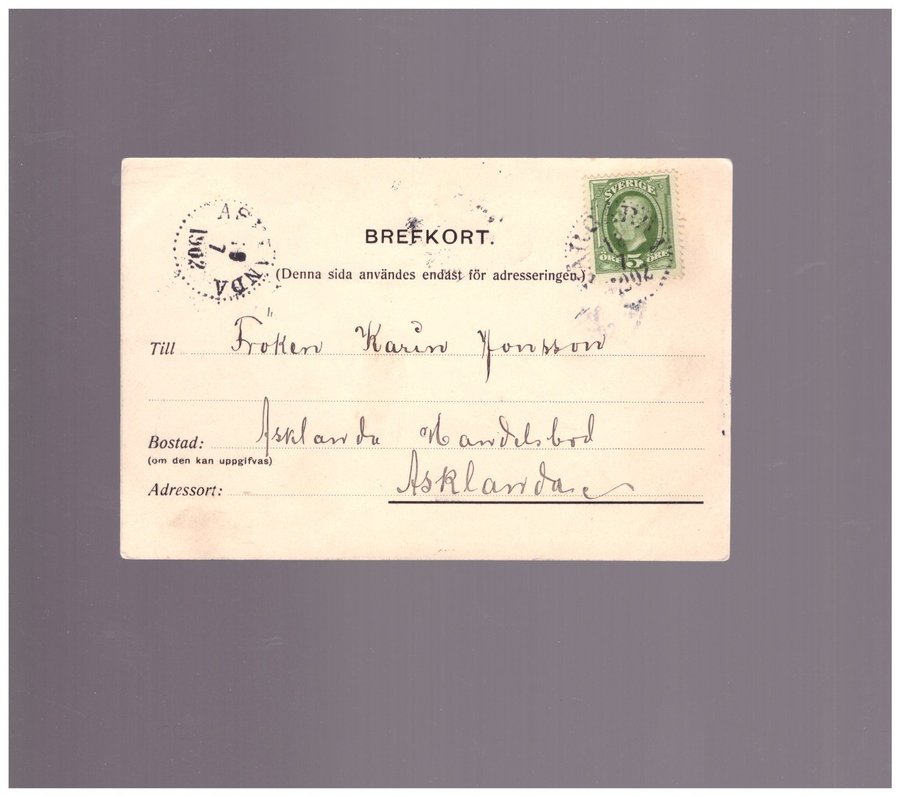 BREFKORT.
(Denna sida användes endast för adresseringen.)
SVERIGE
5
ÖRE ÖRE
1902
ASKLANDA
9
7
1902
Till Fröken Karin Jonsson
Bostad: Asklanda Handelsbod
(om den kan uppgifvas)
Adressort: Asklanda